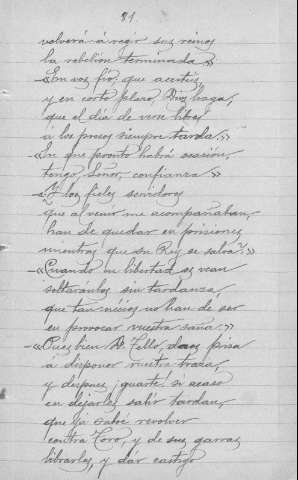 81.
volverá á regir sus reinos
la rebelión terminada»
—«En vos fío; que acertéis,
y en corto plazo, Dios haga,
que el día de vivir libre
á los presos siempre tarda.»
—«En que pronto habrá ocasión,
tengo, Señor, confianza»
—«¿Y los fieles servidores
que al venir me acompañaban,
han de quedar en prisiones
mientras que su Rey se salva?»
—«Cuando en libertad os vean
soltaránlos sin tardanza,
que tan nécios no han de ser
en provocar vuestra saña.»
—«Pues bien Dn Tello, daos prisa
á disponer vuestra traza,
y despues ¡guarte! si acaso
en dejarles salir tardan,
que yá sabré revolver
contra Toro, y de sus garras
librarles, y dár castigo